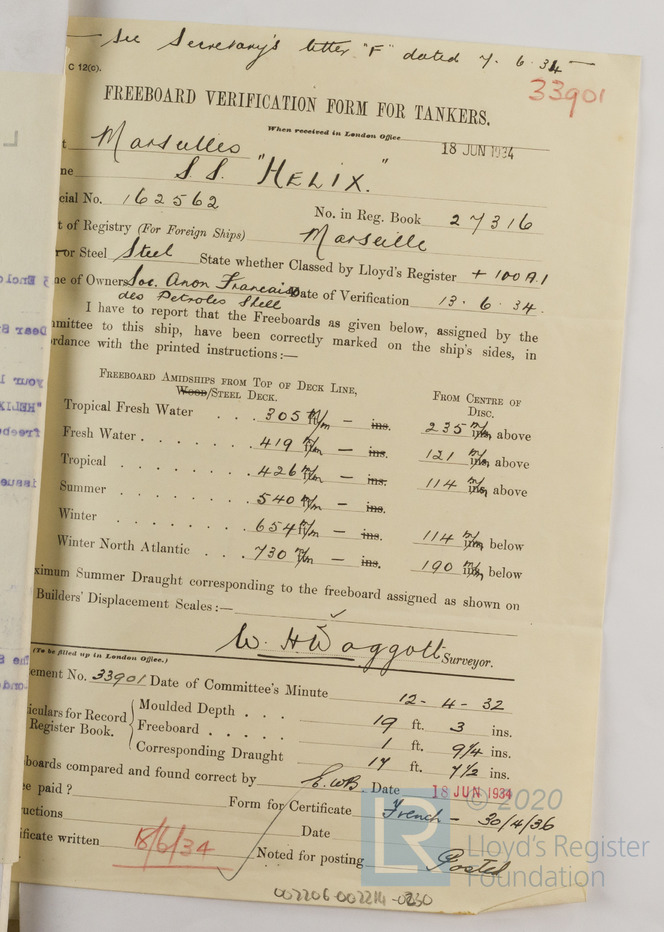 See Secretary's letter "F" dated 7. 6. 34
C 12(c).
33901
FREEBOARD VERIFICATION FORM FOR TANKERS.
When received in London Office 18 JUN 1934
t Marseilles
ne S.S. "HELIX."
cial No. 162562 No. in Reg. Book 27316
t of Registry (For Foreign Ships) Marseille
or Steel Steel State whether Classed by Lloyd's Register + 100 A.1
ne of Owners Soc. Anon Francaise Date of Verification 13. 6. 34.
des Petroles Shell
I have to report that the Freeboards as given below, assigned by the
mmittee to this ship, have been correctly marked on the ship's sides, in
ordance with the printed instructions:—
FREEBOARD AMIDSHIPS FROM TOP OF DECK LINE, FROM CENTRE OF
Wood/STEEL DECK. DISC.
Tropical Fresh Water . . 305 m/m — ins. 235 m/m ins. above
Fresh Water . . . . . 419 m/m — ins. 121 m/m ins. above
Tropical . . . . . . 426 m/m — ins. 114 m/m ins. above
Summer . . . . . . 540 m/m — ins.
Winter . . . . . . 654 m/m — ins. 114 m/m ins. below
Winter North Atlantic . . . 730 m/m — ins. 190 m/m ins. below
ximum Summer Draught corresponding to the freeboard assigned as shown on
Builders' Displacement Scales:— ✓
W. H. Waggott Surveyor.
(To be filled up in London Office.)
ement No. 33901 Date of Committee's Minute 12-4-32
iculars for Record Register Book.
Moulded Depth . . . 19 ft. 3 ins.
Freeboard . . . . . 1 ft. 9¼ ins.
Corresponding Draught 17 ft. 7½ ins.
boards compared and found correct by E.WB. Date 18 JUN 1934
e paid ? Form for Certificate French - 30/4/36
uctions Date
ificate written 18/6/34 Noted for posting Posted
© 2020
LR
Lloyd's Register
Foundation
002206-002214-0230